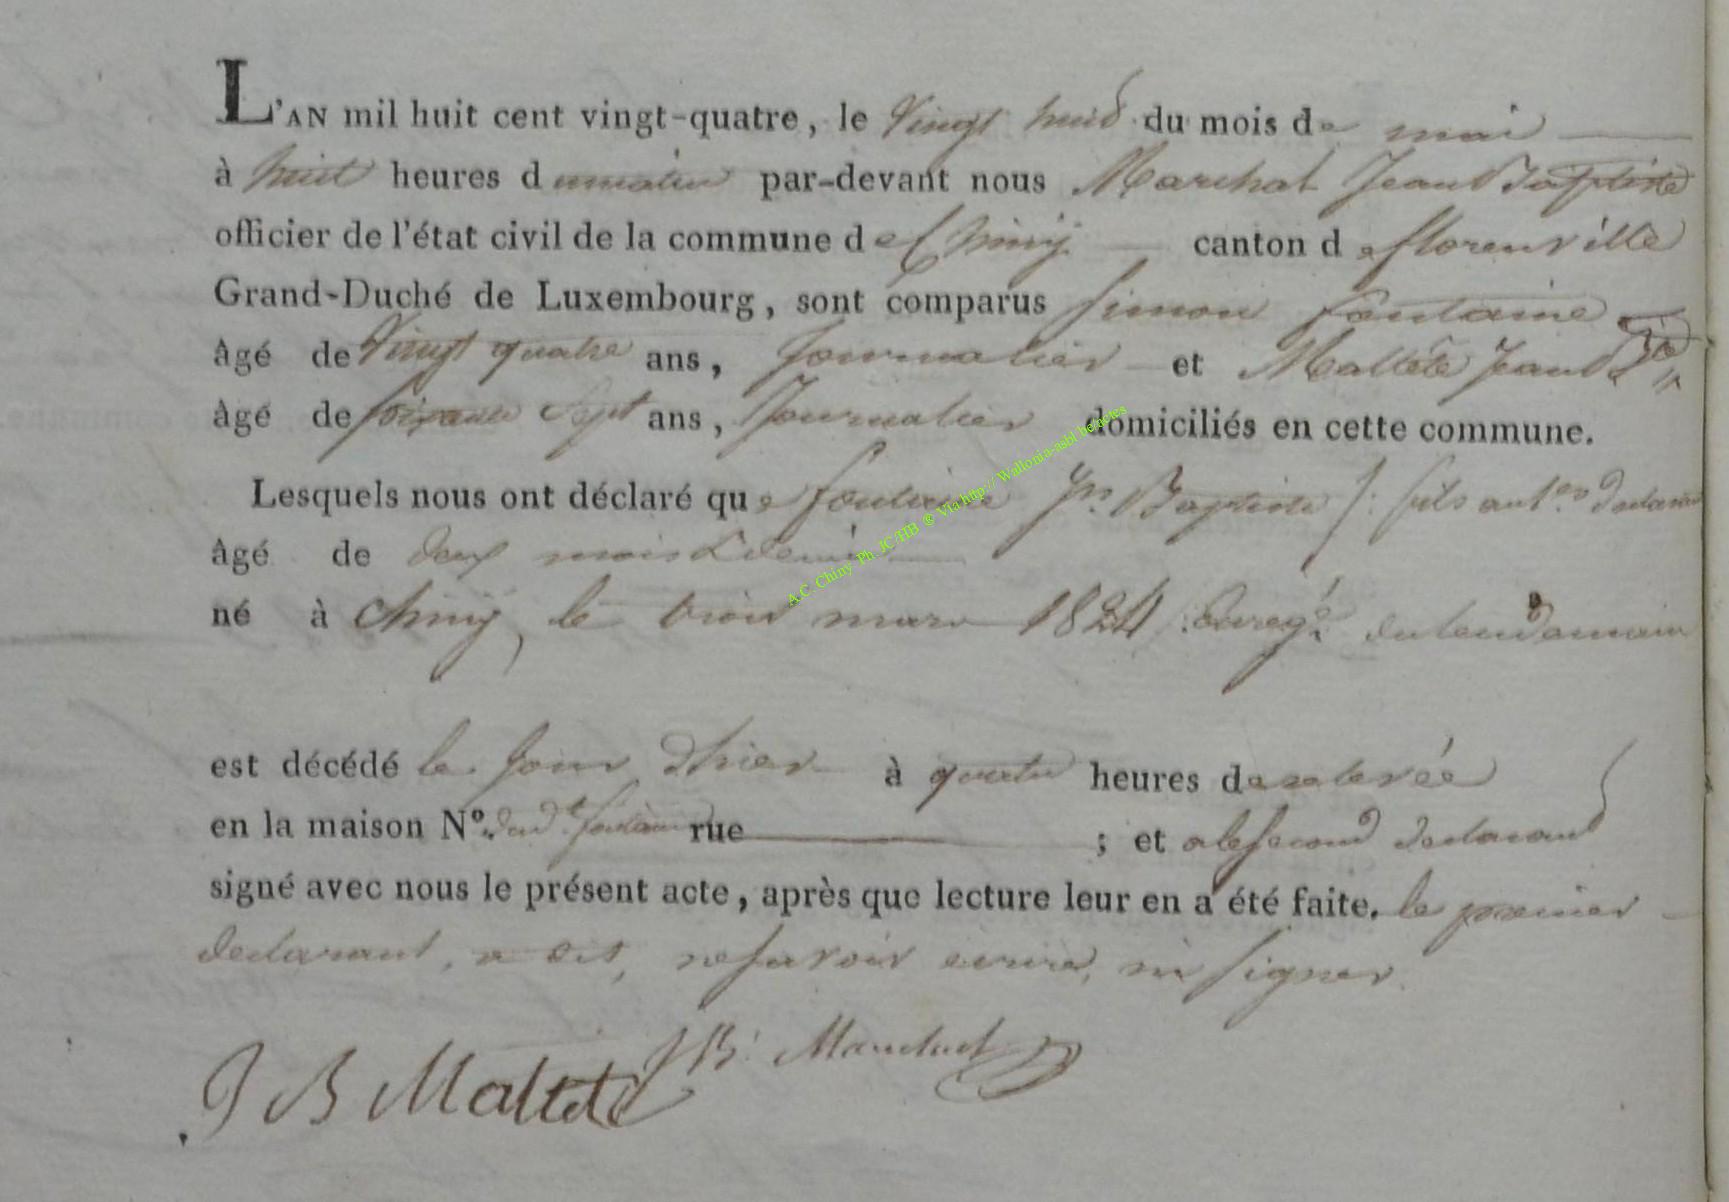 L'AN mil huit cent vingt-quatre, le Vingt huit du mois de mai
à huit heures du matin par-devant nous Marchal Jean Baptiste
officier de l'état civil de la commune de Chiny canton de florenville
Grand-Duché de Luxembourg, sont comparus Simon fontaine
âgé de Vingt quatre ans, Journalier et Maltété Jean Bte
âgé de soixante Sept ans, Journalier domiciliés en cette commune.
Lesquels nous ont déclaré que fontaine Jn Baptiste /: fils au 1er declarant
âgé de deux mois & demie
né à Chiny, le trois mars 1824 Enregé du lendemain
est décédé le Jour d'hier à quatre heures de relevée
en la maison No. dud t fontaine rue ; et a le second declarant
signé avec nous le présent acte, après que lecture leur en a été faite. le premier
declarant, a dit, ne savoir ecrire, ni signer.
J B Maltété JB: Marchal
A.C. Chiny Ph. JC HB ® Via http:// Wallonia-asbl be/actes